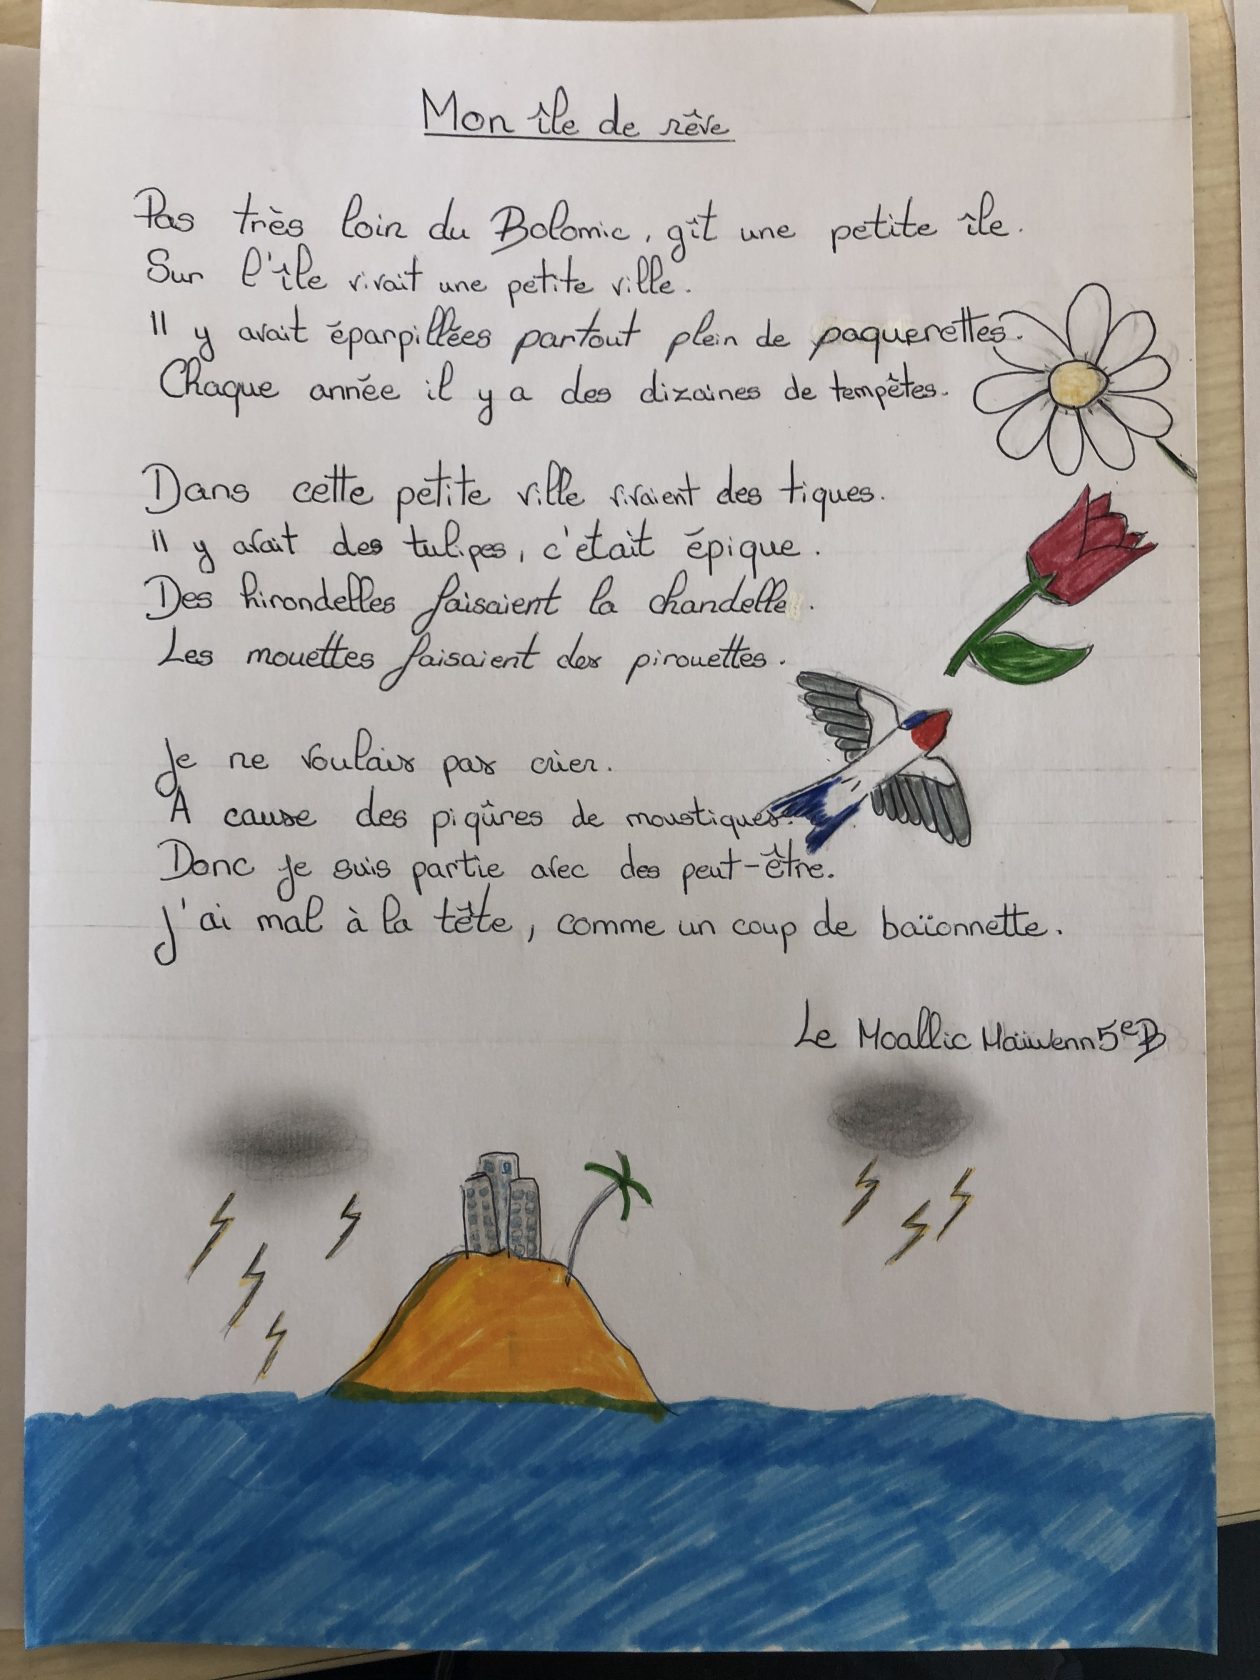 Mon île de rêve
Pas très loin du Bolomic, gît une petite île.
Sur l'île vivait une petite ville.
Il y avait éparpillées partout plein de paquerettes.
Chaque année il y a des dizaines de tempêtes.
Dans cette petite ville vivaient des tiques.
Il y avait des tulipes, c'était épique.
Des hirondelles faisaient la chandelle.
Les mouettes faisaient des pirouettes.
Je ne voulais pas crier.
A cause des piqûres de moustiques.
Donc je suis partie avec des peut-être.
J'ai mal à la tête, comme un coup de baïonnette.
Le Moallic Maïwenn 5eB